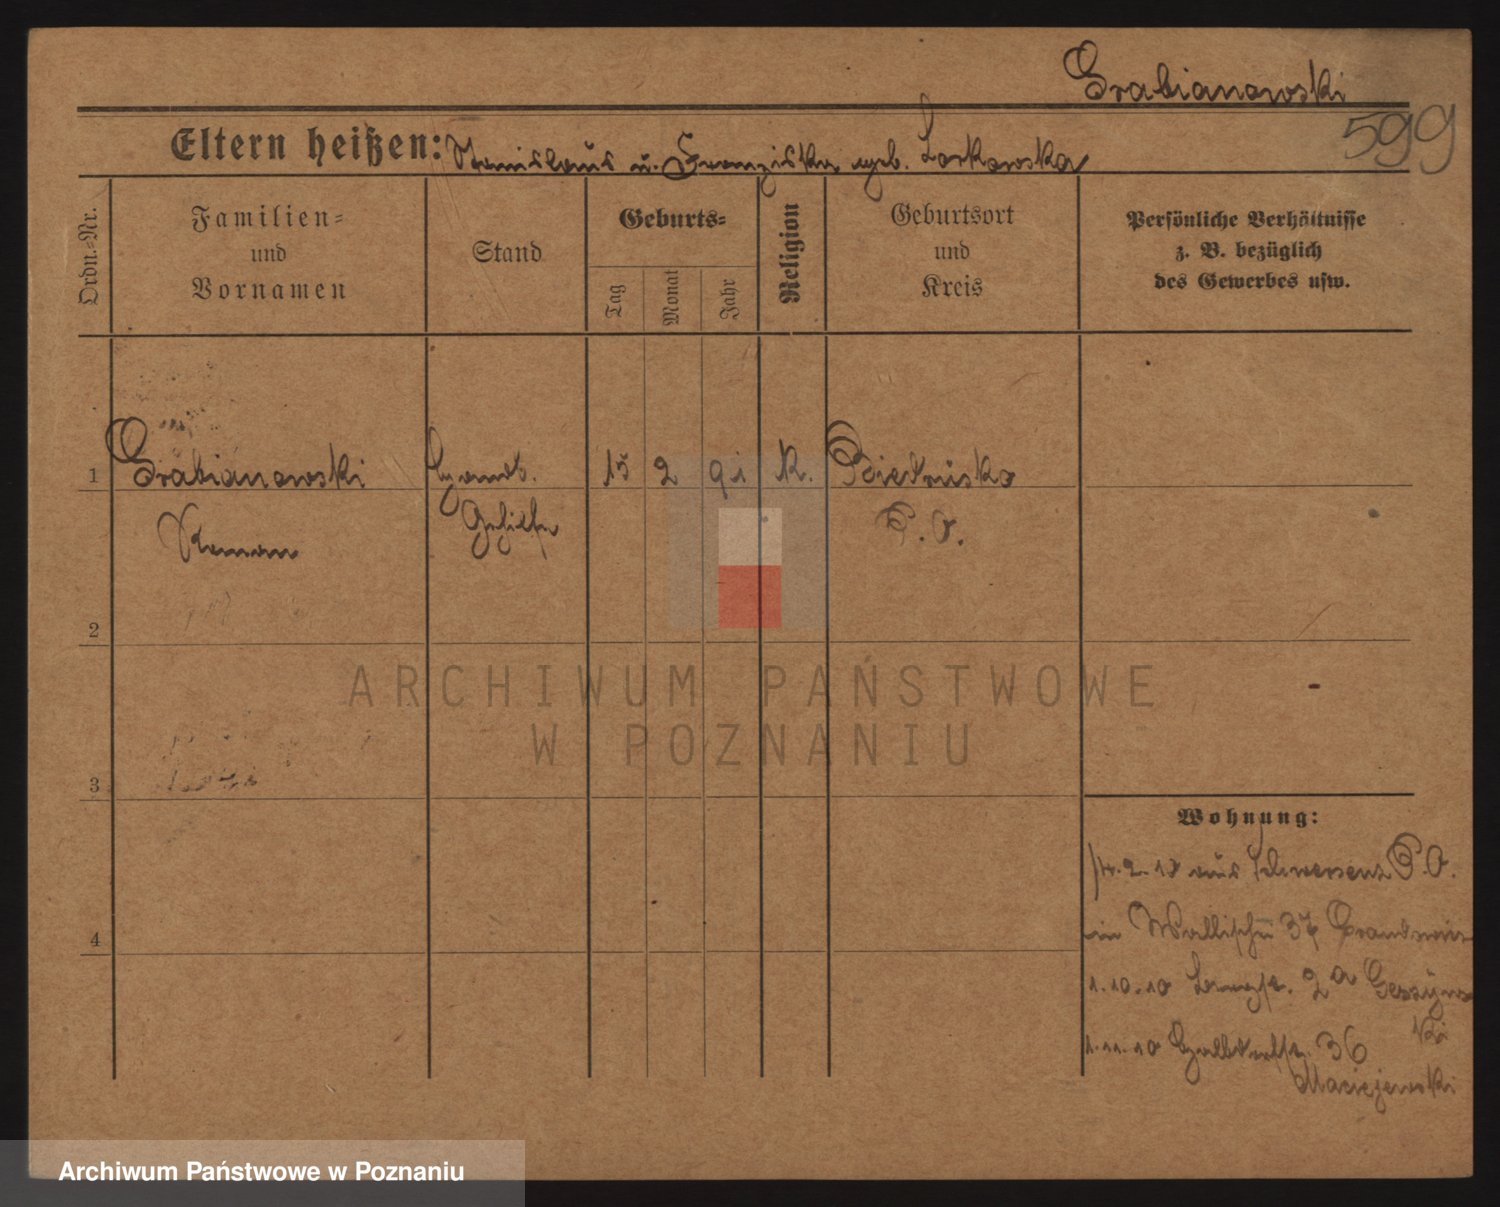 Grabianowski
599
Eltern heißen: Stanislaus u. Franziska geb. Laskowska
Ordn.=Nr.
Familien=
und
Vornamen
Stand
Geburts=
Tag
Monat
Jahr
Religion
Geburtsort
und
Kreis
Persönliche Verhältnisse
z. B. bezüglich
des Gewerbes usw.
1
Grabianowski
Handl.
15 2 91 K.
Biedrusko
Roman
Gehilfe
P. O.
2
ARCHIWUM PAŃSTWOWE
W POZNANIU
3
Wohnung:
14.2.10 aus Schwersenz P.O.
in Wallischei 37
4
1.10.10 Langestr. 2a
1.11.10 Halbdorfstr. 36
Maciejewski
Archiwum Państwowe w Poznaniu